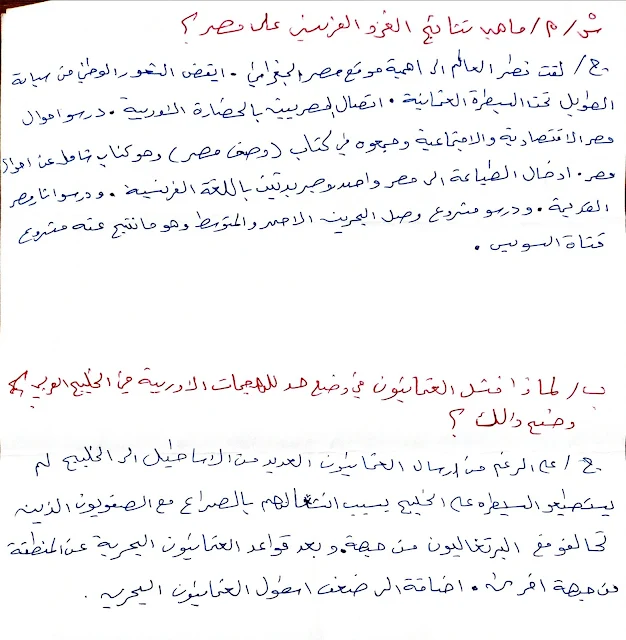 س/م/ ماهي نتائج الغزو الفرنسي على مصر؟
ج/ لفت نظر العالم الى اهمية موقع مصر الجغرافي. ايقض الشعور الوطني من سباته
الطويل تحت السيطرة العثمانية. اتصال المصريين بالحضارة الاوربية. درسو احوال
مصر الاقتصادية والاجتماعية وجمعوه في كتاب (وصف مصر) وهو كتاب شامل عن احوال
مصر. ادخال الطباعة الى مصر واصدو جريدتين باللغة الفرنسية. ودرسو اثار مصر
القديمة. ودرسو مشروع وصل البحرين الاحمر والمتوسط وهو ما نتج عنه مشروع
قناة السويس.
ب/ لماذا فشل العثمانيون في وضع حد للهجمات الاوربية في الخليج العربي؟
وضح ذالك؟
ج/ على الرغم من ارسال العثمانيون العديد من الاساطيل الى الخليج لم
يستطيعو السيطره على الخليج بسبب انشغالهم بالصراع مع الصفويون الذين
تحالفو مع البرتغاليون من جهة. وبعد قواعد العثمانيون البحرية عن المنطقة
من جهة اخرى. اضافة الى ضعف اسطول العثمانيون البحري.